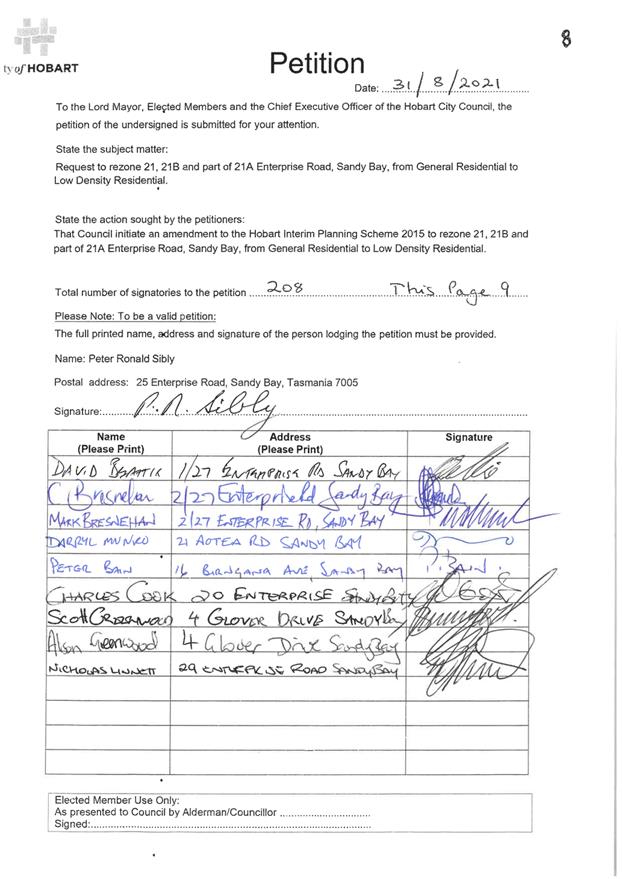 8
ty of HOBART
Petition
Date: 31/8/2021
To the Lord Mayor, Elected Members and the Chief Executive Officer of the Hobart City Council, the
petition of the undersigned is submitted for your attention.
State the subject matter:
Request to rezone 21, 21B and part of 21A Enterprise Road, Sandy Bay, from General Residential to
Low Density Residential.
State the action sought by the petitioners:
That Council initiate an amendment to the Hobart Interim Planning Scheme 2015 to rezone 21, 21B and
part of 21A Enterprise Road, Sandy Bay, from General Residential to Low Density Residential.
Total number of signatories to the petition 208 This Page 9
Please Note: To be a valid petition:
The full printed name, address and signature of the person lodging the petition must be provided.
Name: Peter Ronald Sibly
Postal address: 25 Enterprise Road, Sandy Bay, Tasmania 7005
Signature: P.R. Sibly
Name Address Signature
(Please Print) (Please Print)
DAVID BEATTIE 1/27 ENTERPRISE RD SANDY BAY
C Bresnehan 2/27 Enterprise Rd Sandy Bay
MARK BRESNEHAN 2/27 ENTERPRISE RD, SANDY BAY
DARRYL MUNRO 21 AOTEA RD SANDY BAY
PETER BAIN 16 BIRNGANA AVE, SANDY BAY P. BAIN.
CHARLES COOK 20 ENTERPRISE SANDY BAY
Scott Greenwood 4 GLOVER DRIVE SANDY Bay
Alison Greenwood 4 Glover Drive Sandy Bay
NICHOLAS LINNETT 29 ENTERPRISE ROAD SANDY BAY
Elected Member Use Only:
As presented to Council by Alderman/Councillor
Signed: